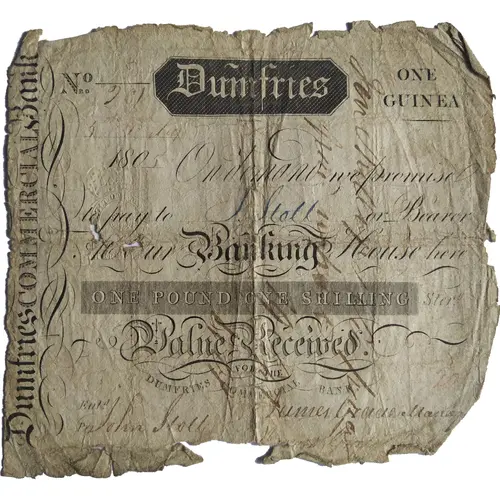 Dumfries COMMERCIAL Bank
No
Dumfries
ONE
GUINEA
180
On demand we promise
to pay to J. Stott or Bearer
At our Banking House here
ONE POUND ONE SHILLING Sterg
Value Received.
FOR THE
DUMFRIES COMMERCIAL BANK
Entd
John Stott
James Gracie Manag